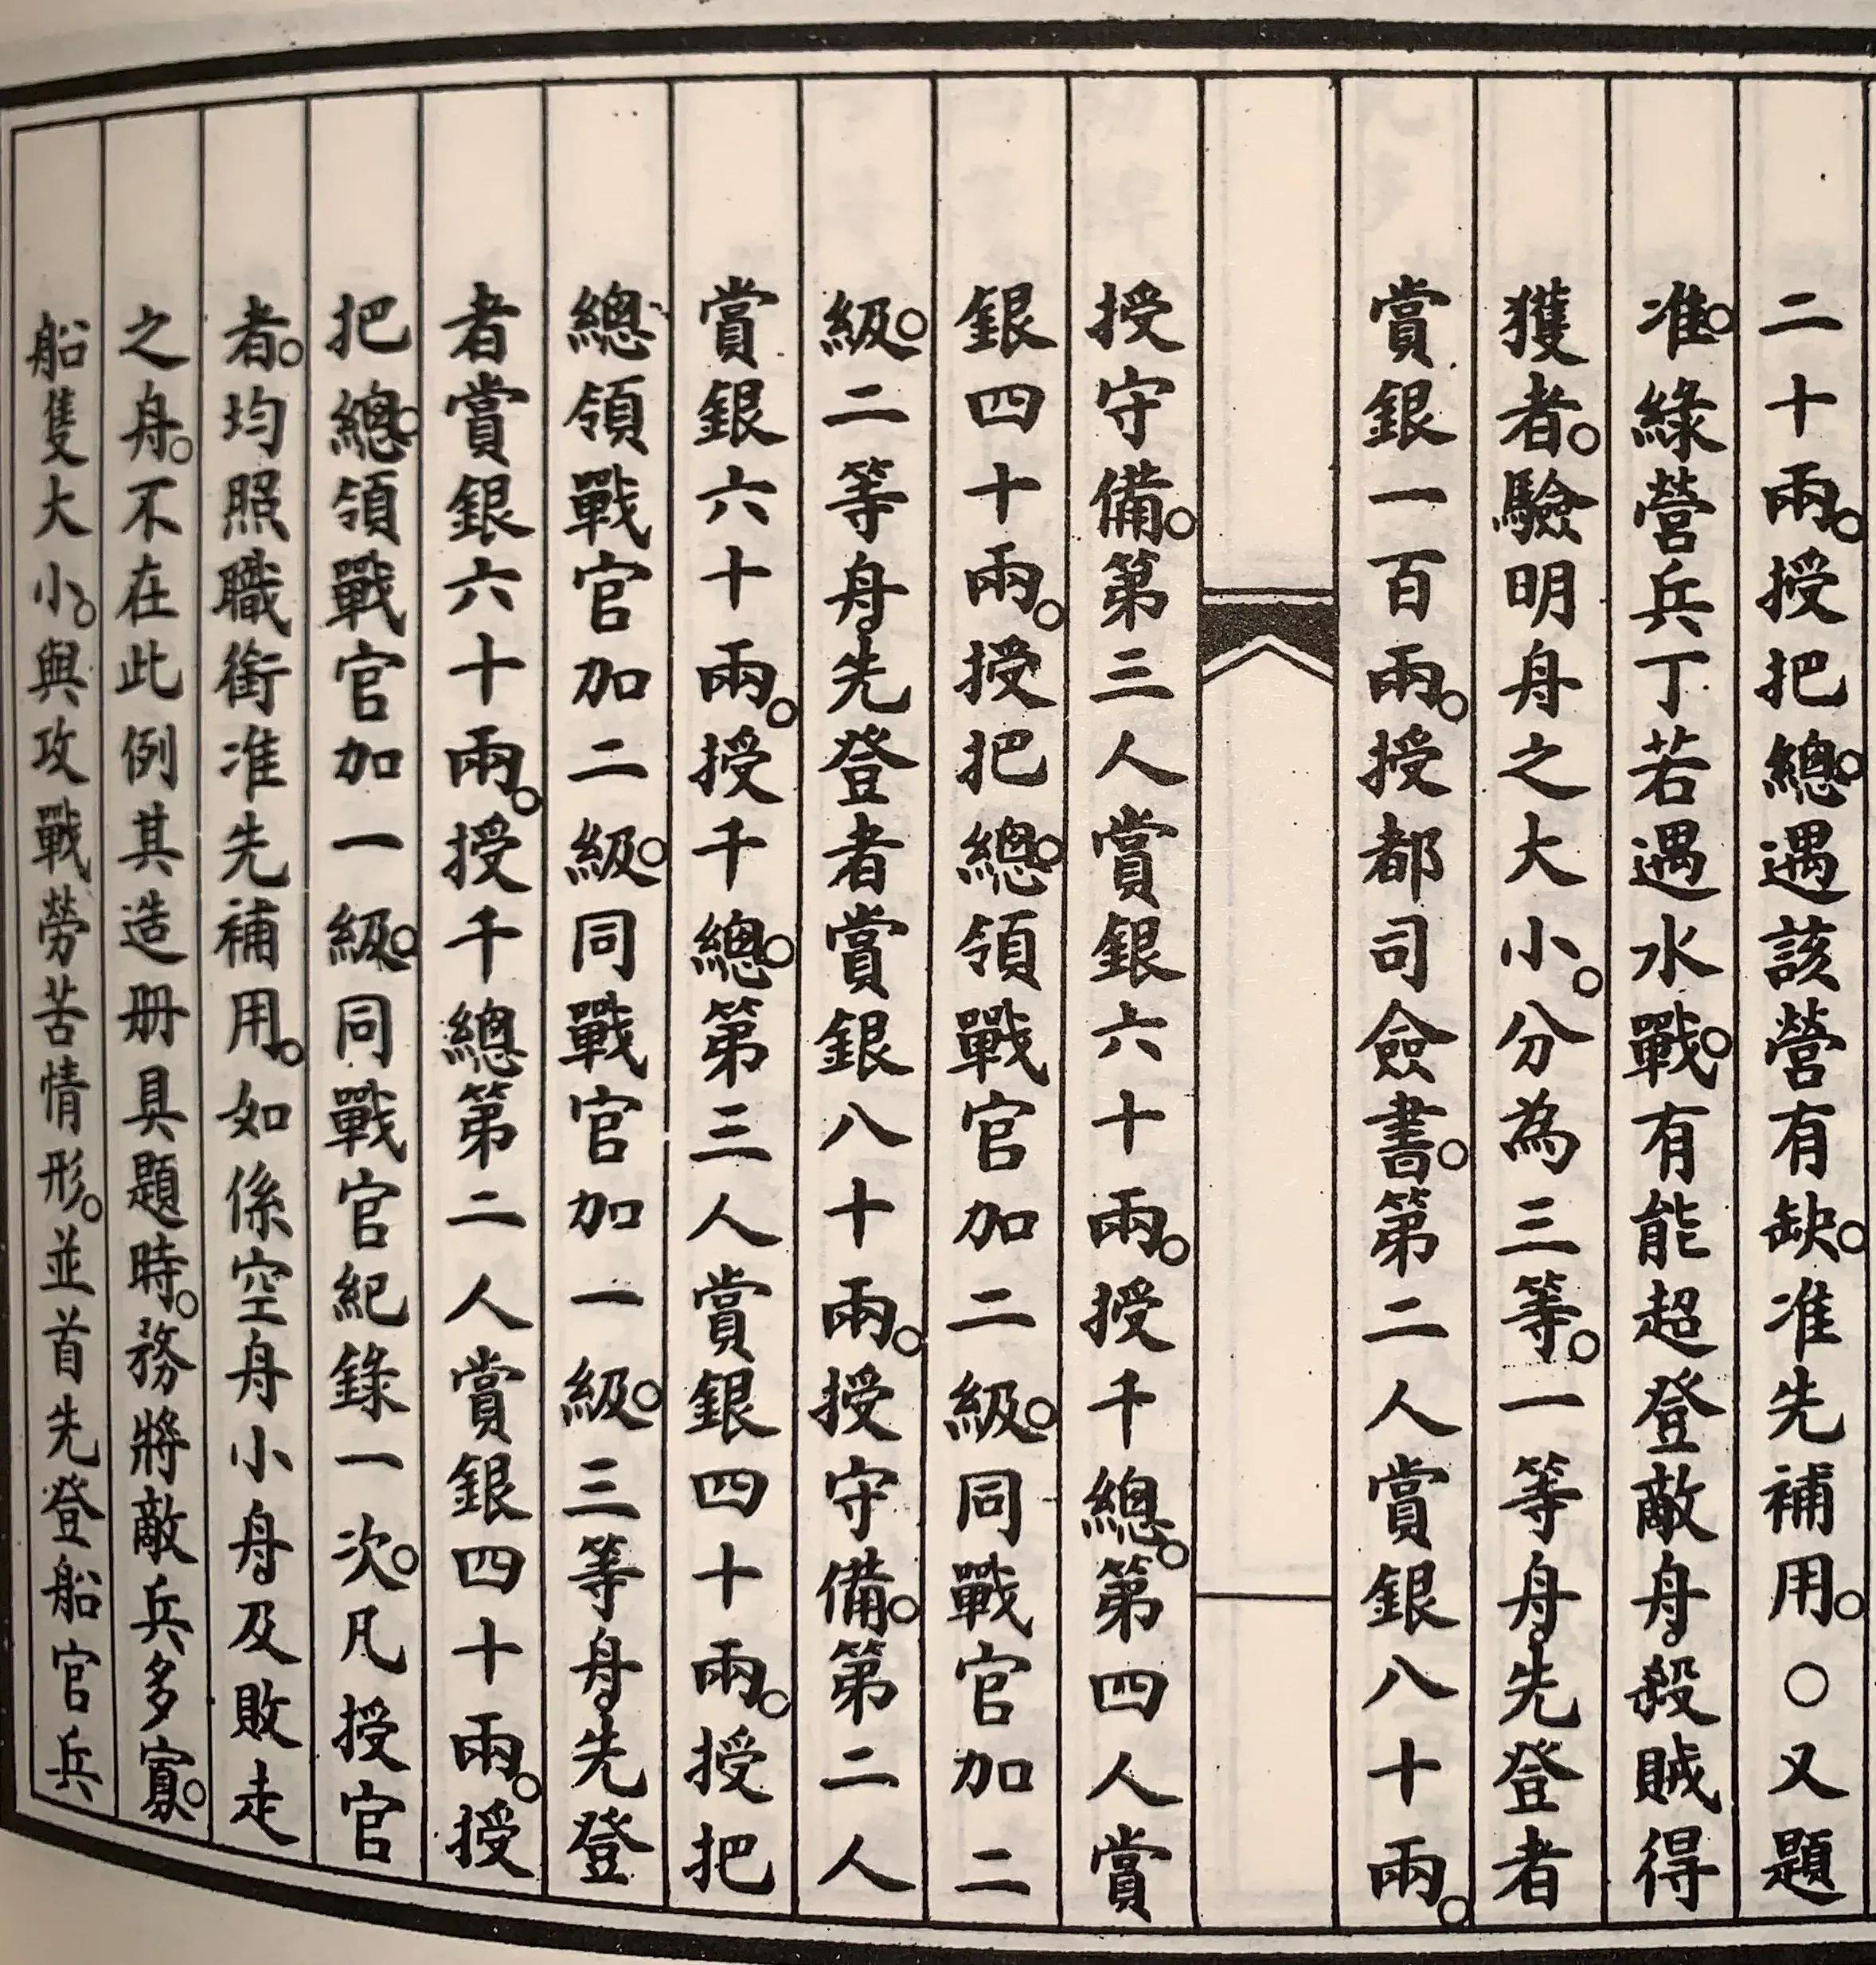 二十兩。授把總。遇該營有缺。准先補用。○又題
准。綠營兵丁若遇水戰。有能超登敵舟。殺賊得
獲者。驗明舟之大小。分為三等。一等舟。先登者
賞銀一百兩。授都司僉書。第二人賞銀八十兩。
授守備。第三人賞銀六十兩。授千總。第四人賞
銀四十兩。授把總。領戰官加二級。同戰官加二
級。二等舟。先登者賞銀八十兩。授守備。第二人
賞銀六十兩。授千總。第三人賞銀四十兩。授把
總領戰官加二級。同戰官加一級。三等舟。先登
者賞銀六十兩。授千總第二人賞銀四十兩。授
把總。領戰官加一級。同戰官紀錄一次。凡授官
者。均照職銜准先補用。如係空舟小舟。及敗走
之舟。不在此例其造册具題時。務將敵兵多寡。
船隻大小。與攻戰勞苦情形。並首先登船官兵